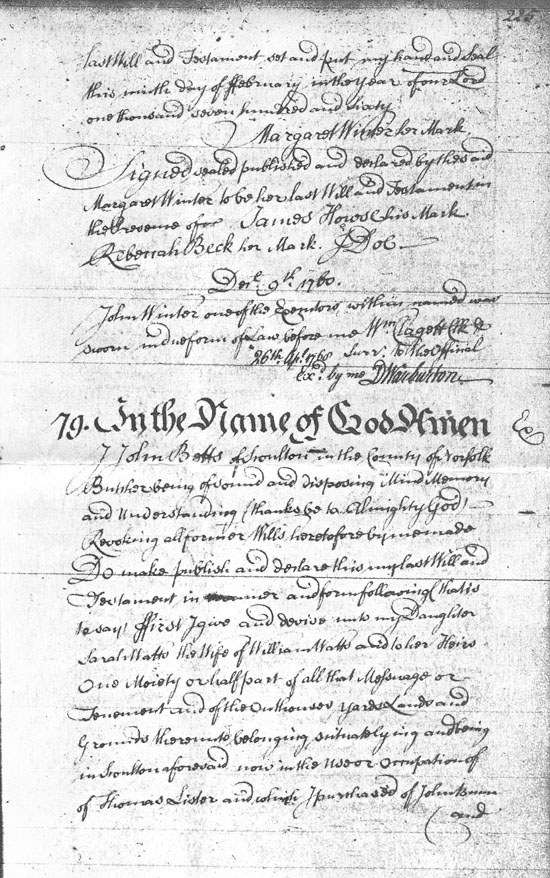 225
last Will and Testament set and put my hand and Seal
this ninth day of ffebruary in the year of our Lord
one thousand seven hundred and sixty
Margaret Winter her Mark
Signed sealed published and declared by the said
Margaret Winter to be her last Will and Testament in
the Presence of James Howse his Mark
Rebeccah Beck her Mark. J Dob
9th. 1760.
John Winter one of the Executors within named was
sworn in due form of Law before me Wm Clagett Clk
26th. Apl. 1768 Surr. to the Official
Exd. by me D Warburton
79. In the Name of God Amen
Ex
I John Betts of Scoulton in the County of Norfolk
Butcher being of sound and disposing Mind Memory
and Understanding (thanks be to Almighty God)
Revoking all former Wills heretofore by me made
Do make publish and declare this my last Will and
Testament in manner and form following (that is
to say) ffirst I give and devise unto my Daughter
Sarah Watts the Wife of William Watts and to her Heirs
One Moiety or half part of all that Messuage or
Tenement and of the Outhouses Yards Lands and
Grounds thereunto belonging situate lying and being
in Scoulton aforesaid now in the use or Occupation of
of Thomas Lister and which I purchased of John
and